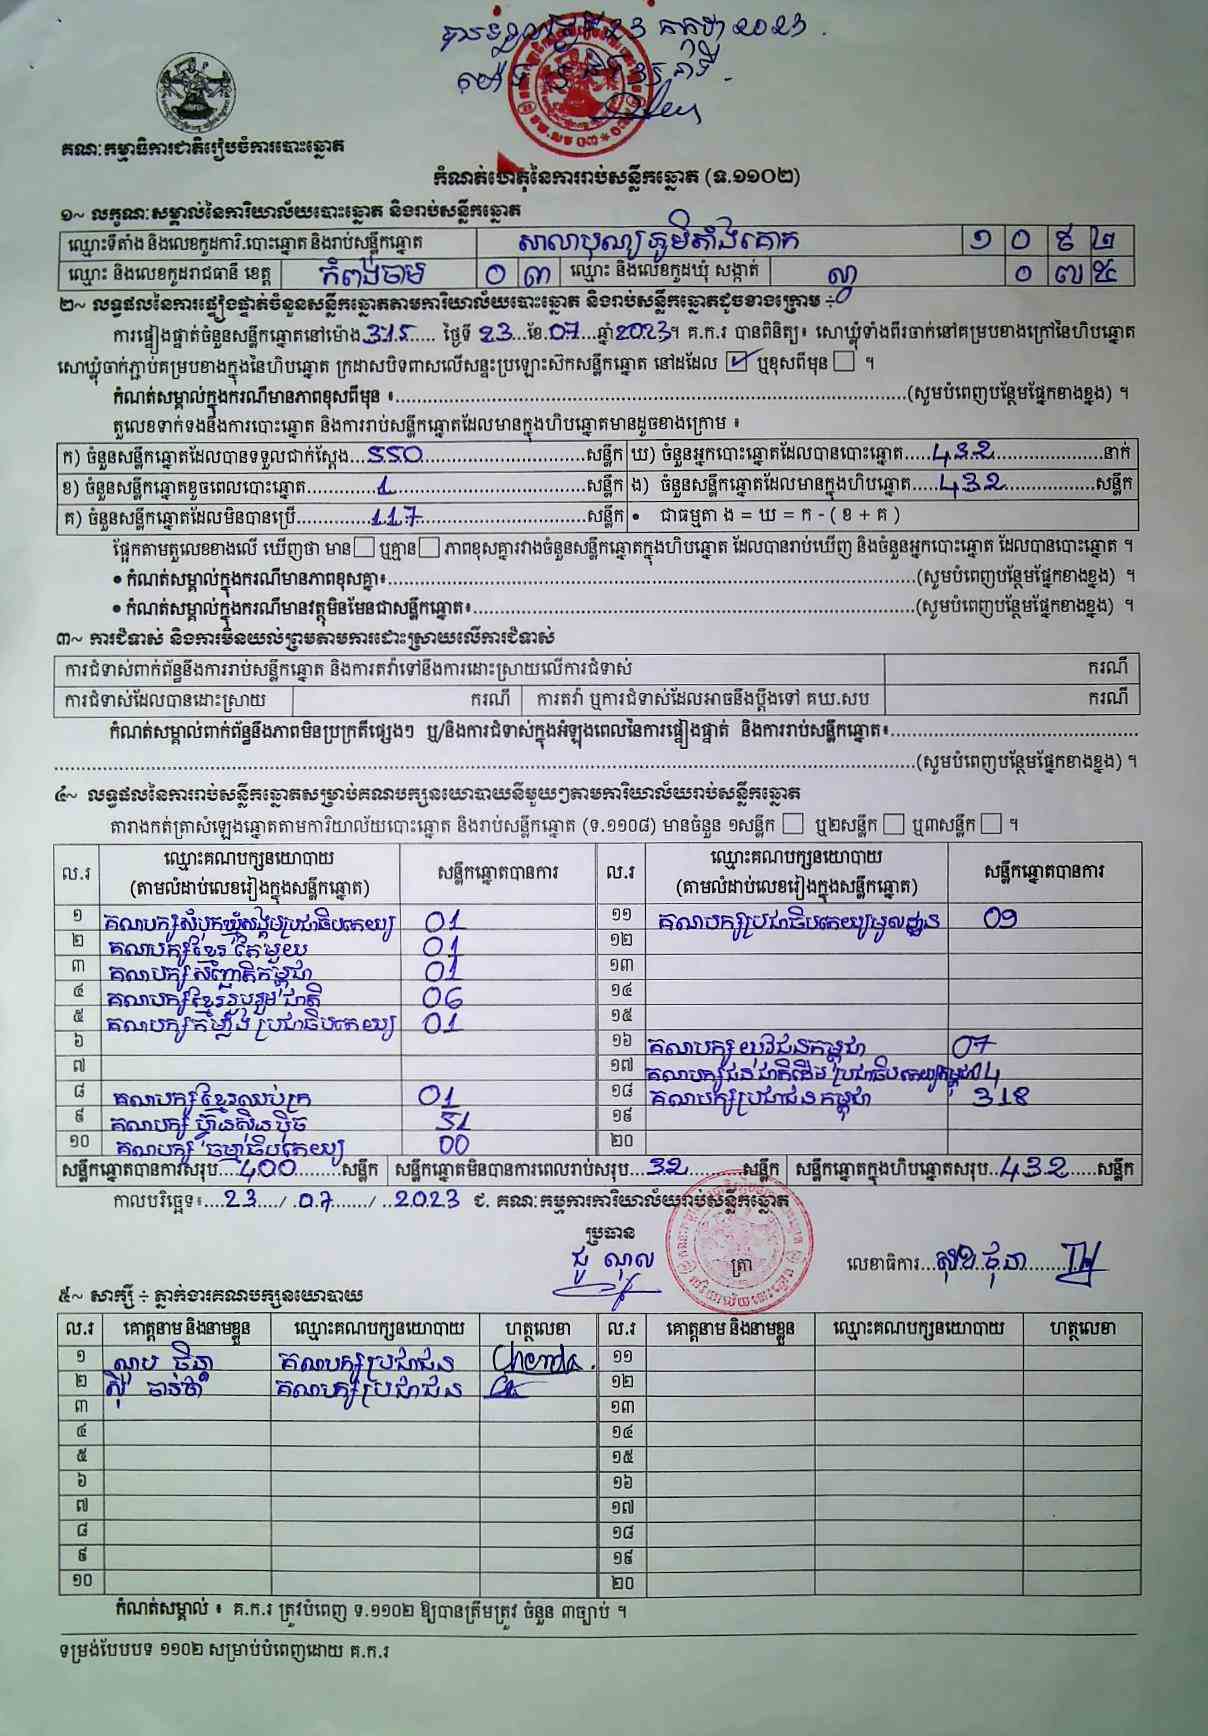 បានទទួលថ្ងៃទី 23 កក្កដា 2023 .
គណៈកម្មាធិការជាតិរៀបចំការបោះឆ្នោត
កំណត់ហេតុនៃការរាប់សន្លឹកឆ្នោត (ទ.១១០២)
១~ លក្ខណៈសម្គាល់នៃការិយាល័យបោះឆ្នោត និងរាប់សន្លឹកឆ្នោត
ឈ្មោះទីតាំង និងលេខកូដការិ.បោះឆ្នោត និងរាប់សន្លឹកឆ្នោត សាលាបុណ្យភូមិតាំងគោក ១ ០ ៩ ២
ឈ្មោះ និងលេខកូដរាជធានី ខេត្ត កំពង់ចាម ០ ៣ ឈ្មោះ និងលេខកូដឃុំ សង្កាត់ ល្វា ០ ៧ ៥
២~ លទ្ធផលនៃការផ្ទៀងផ្ទាត់ចំនួនសន្លឹកឆ្នោតតាមការិយាល័យបោះឆ្នោត និងរាប់សន្លឹកឆ្នោតដូចខាងក្រោម ÷
ការផ្ទៀងផ្ទាត់ចំនួនសន្លឹកឆ្នោតនៅម៉ោង 315 ថ្ងៃទី 23 ខែ 07 ឆ្នាំ 2023 ។ គ.ក.រ បានពិនិត្យ៖ សោឃ្លុំទាំងពីរចាក់នៅគម្របខាងក្រៅនៃហិបឆ្នោត
សោឃ្លុំចាក់ភ្ជាប់គម្របខាងក្នុងនៃហិបឆ្នោត ក្រដាសបិទពាសលើសន្ទះប្រឡោះស៊កសន្លឹកឆ្នោត នៅដដែល ☑ ឬខុសពីមុន ☐ ។
កំណត់សម្គាល់ក្នុងករណីមានភាពខុសពីមុន ៖ (សូមបំពេញបន្ថែមផ្នែកខាងខ្នង) ។
តួលេខទាក់ទងនឹងការបោះឆ្នោត និងការរាប់សន្លឹកឆ្នោតដែលមានក្នុងហិបឆ្នោតមានដូចខាងក្រោម ៖
ក) ចំនួនសន្លឹកឆ្នោតដែលបានទទួលជាក់ស្តែង 550 សន្លឹក ឃ) ចំនួនអ្នកបោះឆ្នោតដែលបានបោះឆ្នោត 432 នាក់
ខ) ចំនួនសន្លឹកឆ្នោតខូចពេលបោះឆ្នោត 1 សន្លឹក ង) ចំនួនសន្លឹកឆ្នោតដែលមានក្នុងហិបឆ្នោត 432 សន្លឹក
គ) ចំនួនសន្លឹកឆ្នោតដែលមិនបានប្រើ 117 សន្លឹក • ជាធម្មតា ង = ឃ = ក - ( ខ + គ )
ផ្អែកតាមតួលេខខាងលើ ឃើញថា មាន ☐ ឬគ្មាន ☐ ភាពខុសគ្នារវាងចំនួនសន្លឹកឆ្នោតក្នុងហិបឆ្នោត ដែលបានរាប់ឃើញ និងចំនួនអ្នកបោះឆ្នោត ដែលបានបោះឆ្នោត ។
• កំណត់សម្គាល់ក្នុងករណីមានភាពខុសគ្នា៖ (សូមបំពេញបន្ថែមផ្នែកខាងខ្នង) ។
• កំណត់សម្គាល់ក្នុងករណីមានវត្ថុមិនមែនជាសន្លឹកឆ្នោត៖ (សូមបំពេញបន្ថែមផ្នែកខាងខ្នង) ។
៣~ ការជំទាស់ និងការមិនយល់ព្រមតាមការដោះស្រាយលើការជំទាស់
ការជំទាស់ពាក់ព័ន្ធនឹងការរាប់សន្លឹកឆ្នោត និងការតវ៉ាទៅនឹងការដោះស្រាយលើការជំទាស់ ករណី
ការជំទាស់ដែលបានដោះស្រាយ ករណី ការតវ៉ា ឬការជំទាស់ដែលអាចនឹងប្តឹងទៅ គឃ.សប ករណី
កំណត់សម្គាល់ពាក់ព័ន្ធនឹងភាពមិនប្រក្រតីផ្សេងៗ ឬ/និងការជំទាស់ក្នុងអំឡុងពេលនៃការផ្ទៀងផ្ទាត់ និងការរាប់សន្លឹកឆ្នោត៖
(សូមបំពេញបន្ថែមផ្នែកខាងខ្នង) ។
៤~ លទ្ធផលនៃការរាប់សន្លឹកឆ្នោតសម្រាប់គណបក្សនយោបាយនីមួយៗតាមការិយាល័យរាប់សន្លឹកឆ្នោត
តារាងកត់ត្រាសំឡេងឆ្នោតតាមការិយាល័យបោះឆ្នោត និងរាប់សន្លឹកឆ្នោត (ទ.១១០៨) មានចំនួន ១សន្លឹក ☐ ឬ២សន្លឹក ☐ ឬ៣សន្លឹក ☐ ។
ល.រ ឈ្មោះគណបក្សនយោបាយ សន្លឹកឆ្នោតបានការ ល.រ ឈ្មោះគណបក្សនយោបាយ សន្លឹកឆ្នោតបានការ
(តាមលំដាប់លេខរៀងក្នុងសន្លឹកឆ្នោត) (តាមលំដាប់លេខរៀងក្នុងសន្លឹកឆ្នោត)
១ គណបក្សសំបុកឃ្មុំសង្គមប្រជាធិបតេយ្យ 01 ១១ គណបក្សប្រជាធិបតេយ្យមូលដ្ឋាន 09
២ គណបក្សខ្មែរតែមួយ 01 ១២
៣ គណបក្សសញ្ជាតិកម្ពុជា 01 ១៣
៤ គណបក្សខ្មែររួបរួមជាតិ 06 ១៤
៥ គណបក្សកម្លាំងប្រជាធិបតេយ្យ 01 ១៥
៦ ១៦ គណបក្សយុវជនកម្ពុជា 07
៧ ១៧ គណបក្សជនជាតិដើមប្រជាធិបតេយ្យកម្ពុជា 04
៨ គណបក្សខ្មែរឈប់ក្រ 01 ១៨ គណបក្សប្រជាជនកម្ពុជា 318
៩ គណបក្សហ៊្វុនស៊ិនប៉ិច 51 ១៩
១០ គណបក្សធម្មាធិបតេយ្យ 00 ២០
សន្លឹកឆ្នោតបានការសរុប 400 សន្លឹក សន្លឹកឆ្នោតមិនបានការពេលរាប់សរុប 32 សន្លឹក សន្លឹកឆ្នោតក្នុងហិបឆ្នោតសរុប 432 សន្លឹក
កាលបរិច្ឆេទ៖ 23 / 07 / 2023 ជ. គណៈកម្មការការិយាល័យរាប់សន្លឹកឆ្នោត
ប្រធាន
ជូ ណុល ត្រា លេខាធិការ សុខ ផុនា
៥~ សាក្សី ÷ ភ្នាក់ងារគណបក្សនយោបាយ
ល.រ គោត្តនាម និងនាមខ្លួន ឈ្មោះគណបក្សនយោបាយ ហត្ថលេខា ល.រ គោត្តនាម និងនាមខ្លួន ឈ្មោះគណបក្សនយោបាយ ហត្ថលេខា
១ ណុប ធីន្តា គណបក្សប្រជាជន Chenda . ១១
២ ស៊ី ចាន់ថា គណបក្សប្រជាជន ១២
៣ ១៣
៤ ១៤
៥ ១៥
៦ ១៦
៧ ១៧
៨ ១៨
៩ ១៩
១០ ២០
កំណត់សម្គាល់ ៖ គ.ក.រ ត្រូវបំពេញ ទ.១១០២ ឱ្យបានត្រឹមត្រូវ ចំនួន ៣ច្បាប់ ។
ទម្រង់បែបបទ ១១០២ សម្រាប់បំពេញដោយ គ.ក.រ